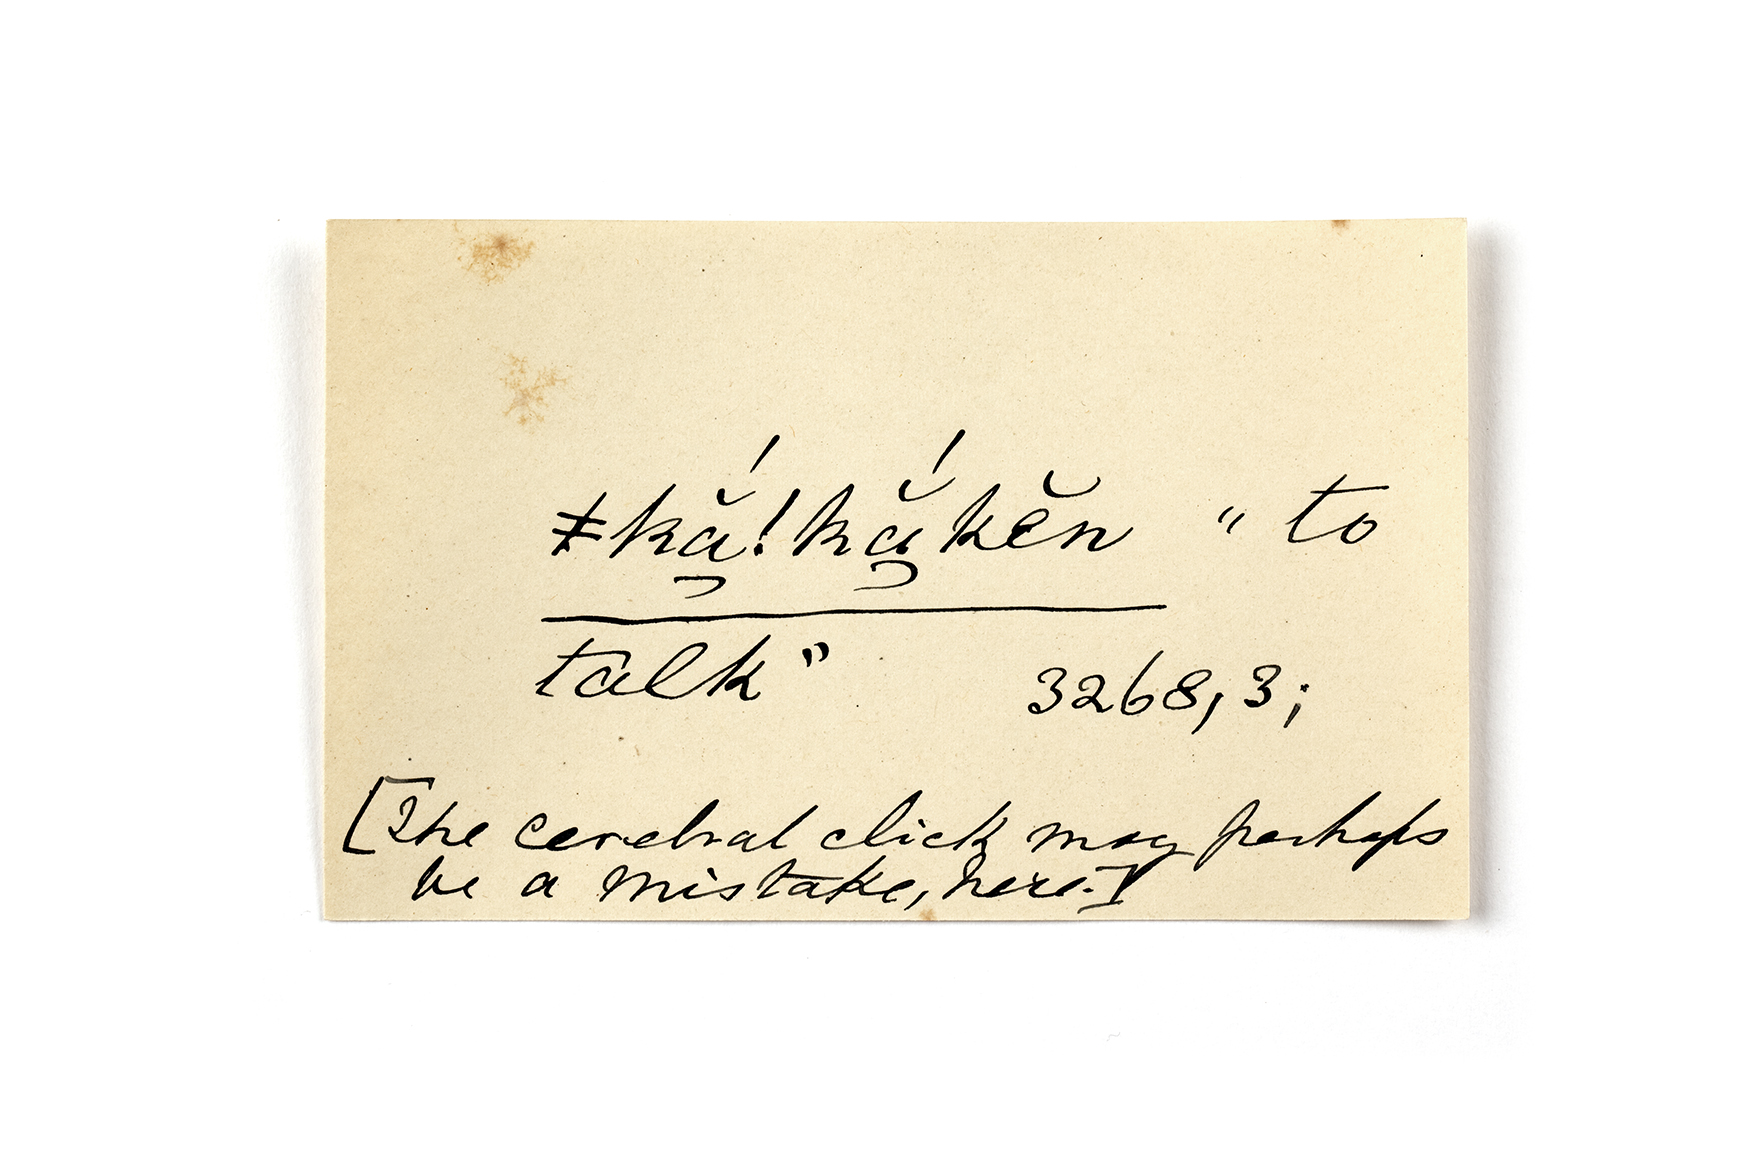 ǂkắ̯!kắ̯kĕn " to
talk" 3268, 3;
[The cerebral click may perhaps
be a mistake, here.]